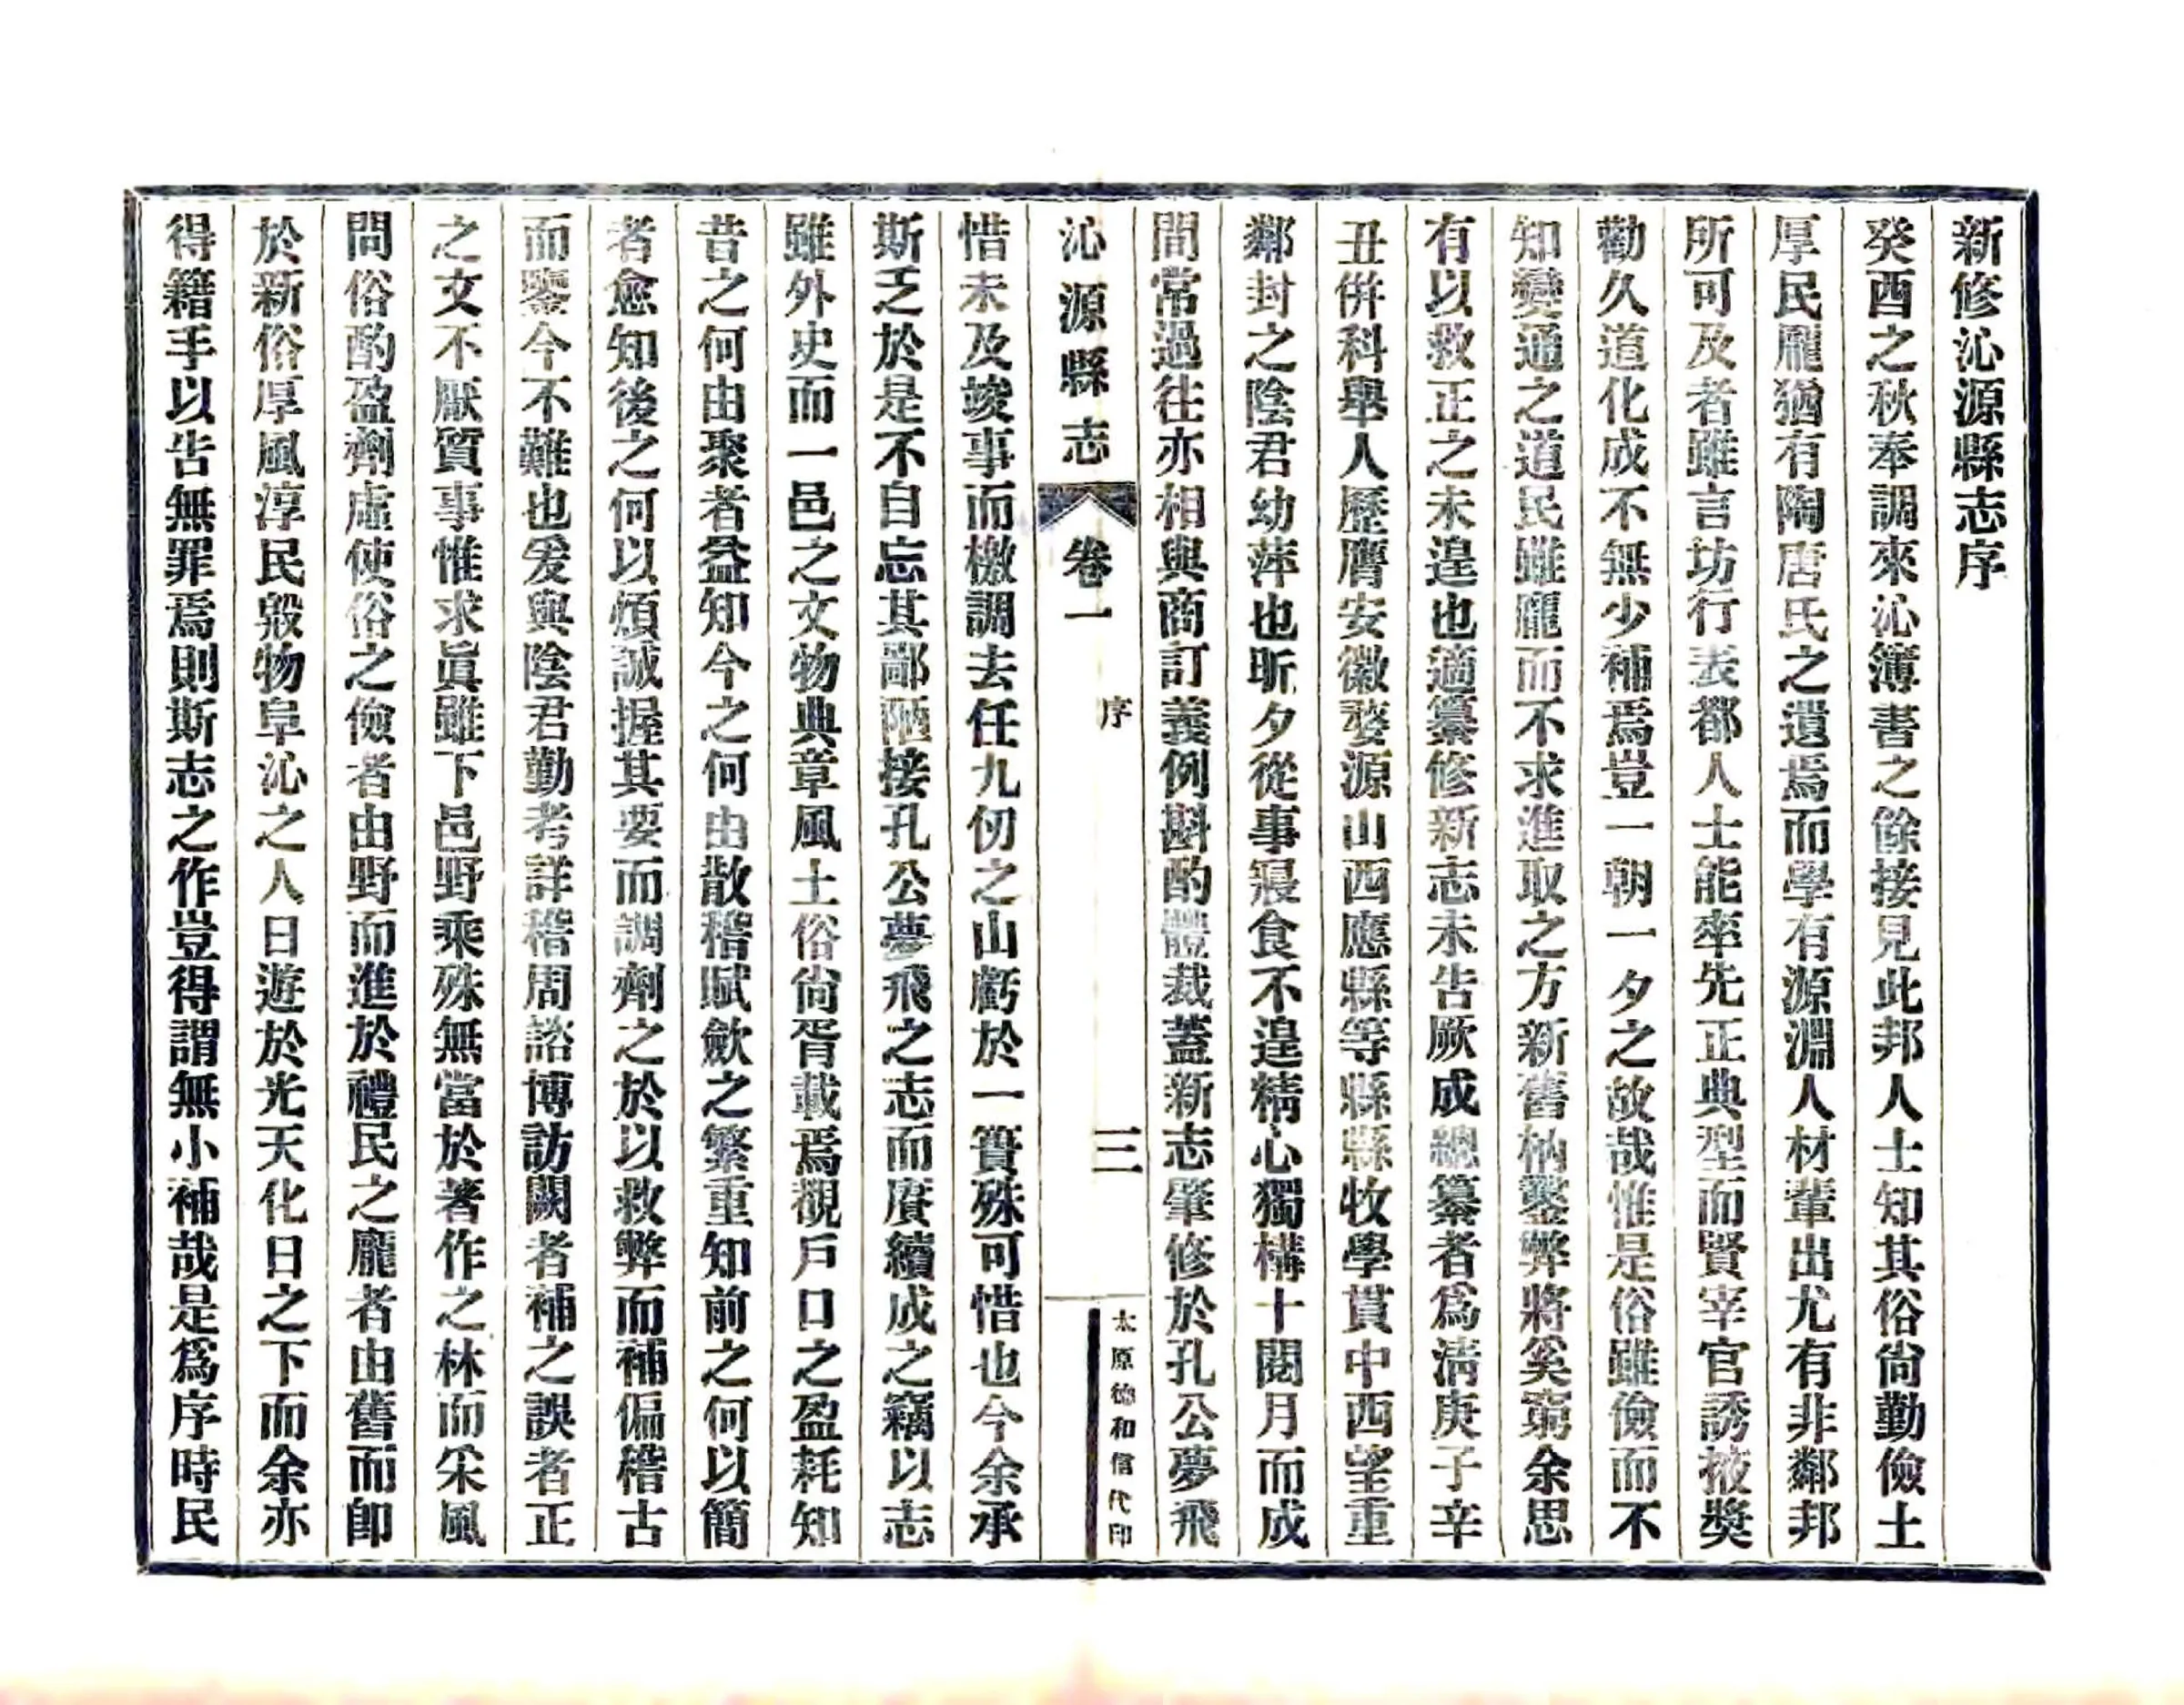 新修沁源縣志序
癸酉之秋奉調來沁簿書之餘接見此邦人士知其俗尙勤儉土
厚民龐猶有陶唐氏之遺焉而學有源淵人材輩出尤有非鄰邦
所可及者雖言坊行表都人士能率先正典型而賢宰官誘掖獎
勸久道化成不無少補焉豈一朝一夕之故哉惟是俗雖儉而不
知變通之道民雖龐而不求進取之方新舊枘鑿弊將奚窮余思
有以救正之未遑也適纂修新志未告厥成總纂者爲淸庚子辛
丑倂科舉人歷膺安徽婺源山西應縣等縣縣牧學貫中西望重
鄰封之陰君幼萍也昕夕從事寢食不遑精心獨構十閱月而成
間常過往亦相與商訂義例斟酌體裁蓋新志肇修於孔公夢飛
沁源縣志
卷一
序
三
太原德和信代印
惜未及竣事而檄調去任九仞之山虧於一簣殊可惜也今余承
斯乏於是不自忘其鄙陋接孔公夢飛之志而賡續成之竊以志
雖外史而一邑之文物典章風土俗尙胥載焉覩戶口之盈耗知
昔之何由聚者益知今之何由散稽賦歛之繁重知前之何以簡
者愈知後之何以煩誠握其要而調劑之於以救弊而補偏稽古
而鑒今不難也爰與陰君勤考詳稽周諮博訪闕者補之誤者正
之文不厭質事惟求眞雖下邑野乘殊無當於著作之林而采風
問俗酌盈劑虛使俗之儉者由野而進於禮民之龐者由舊而卽
於新俗厚風淳民殷物阜沁之人日遊於光天化日之下而余亦
得籍手以告無罪焉則斯志之作豈得謂無小補哉是爲序時民